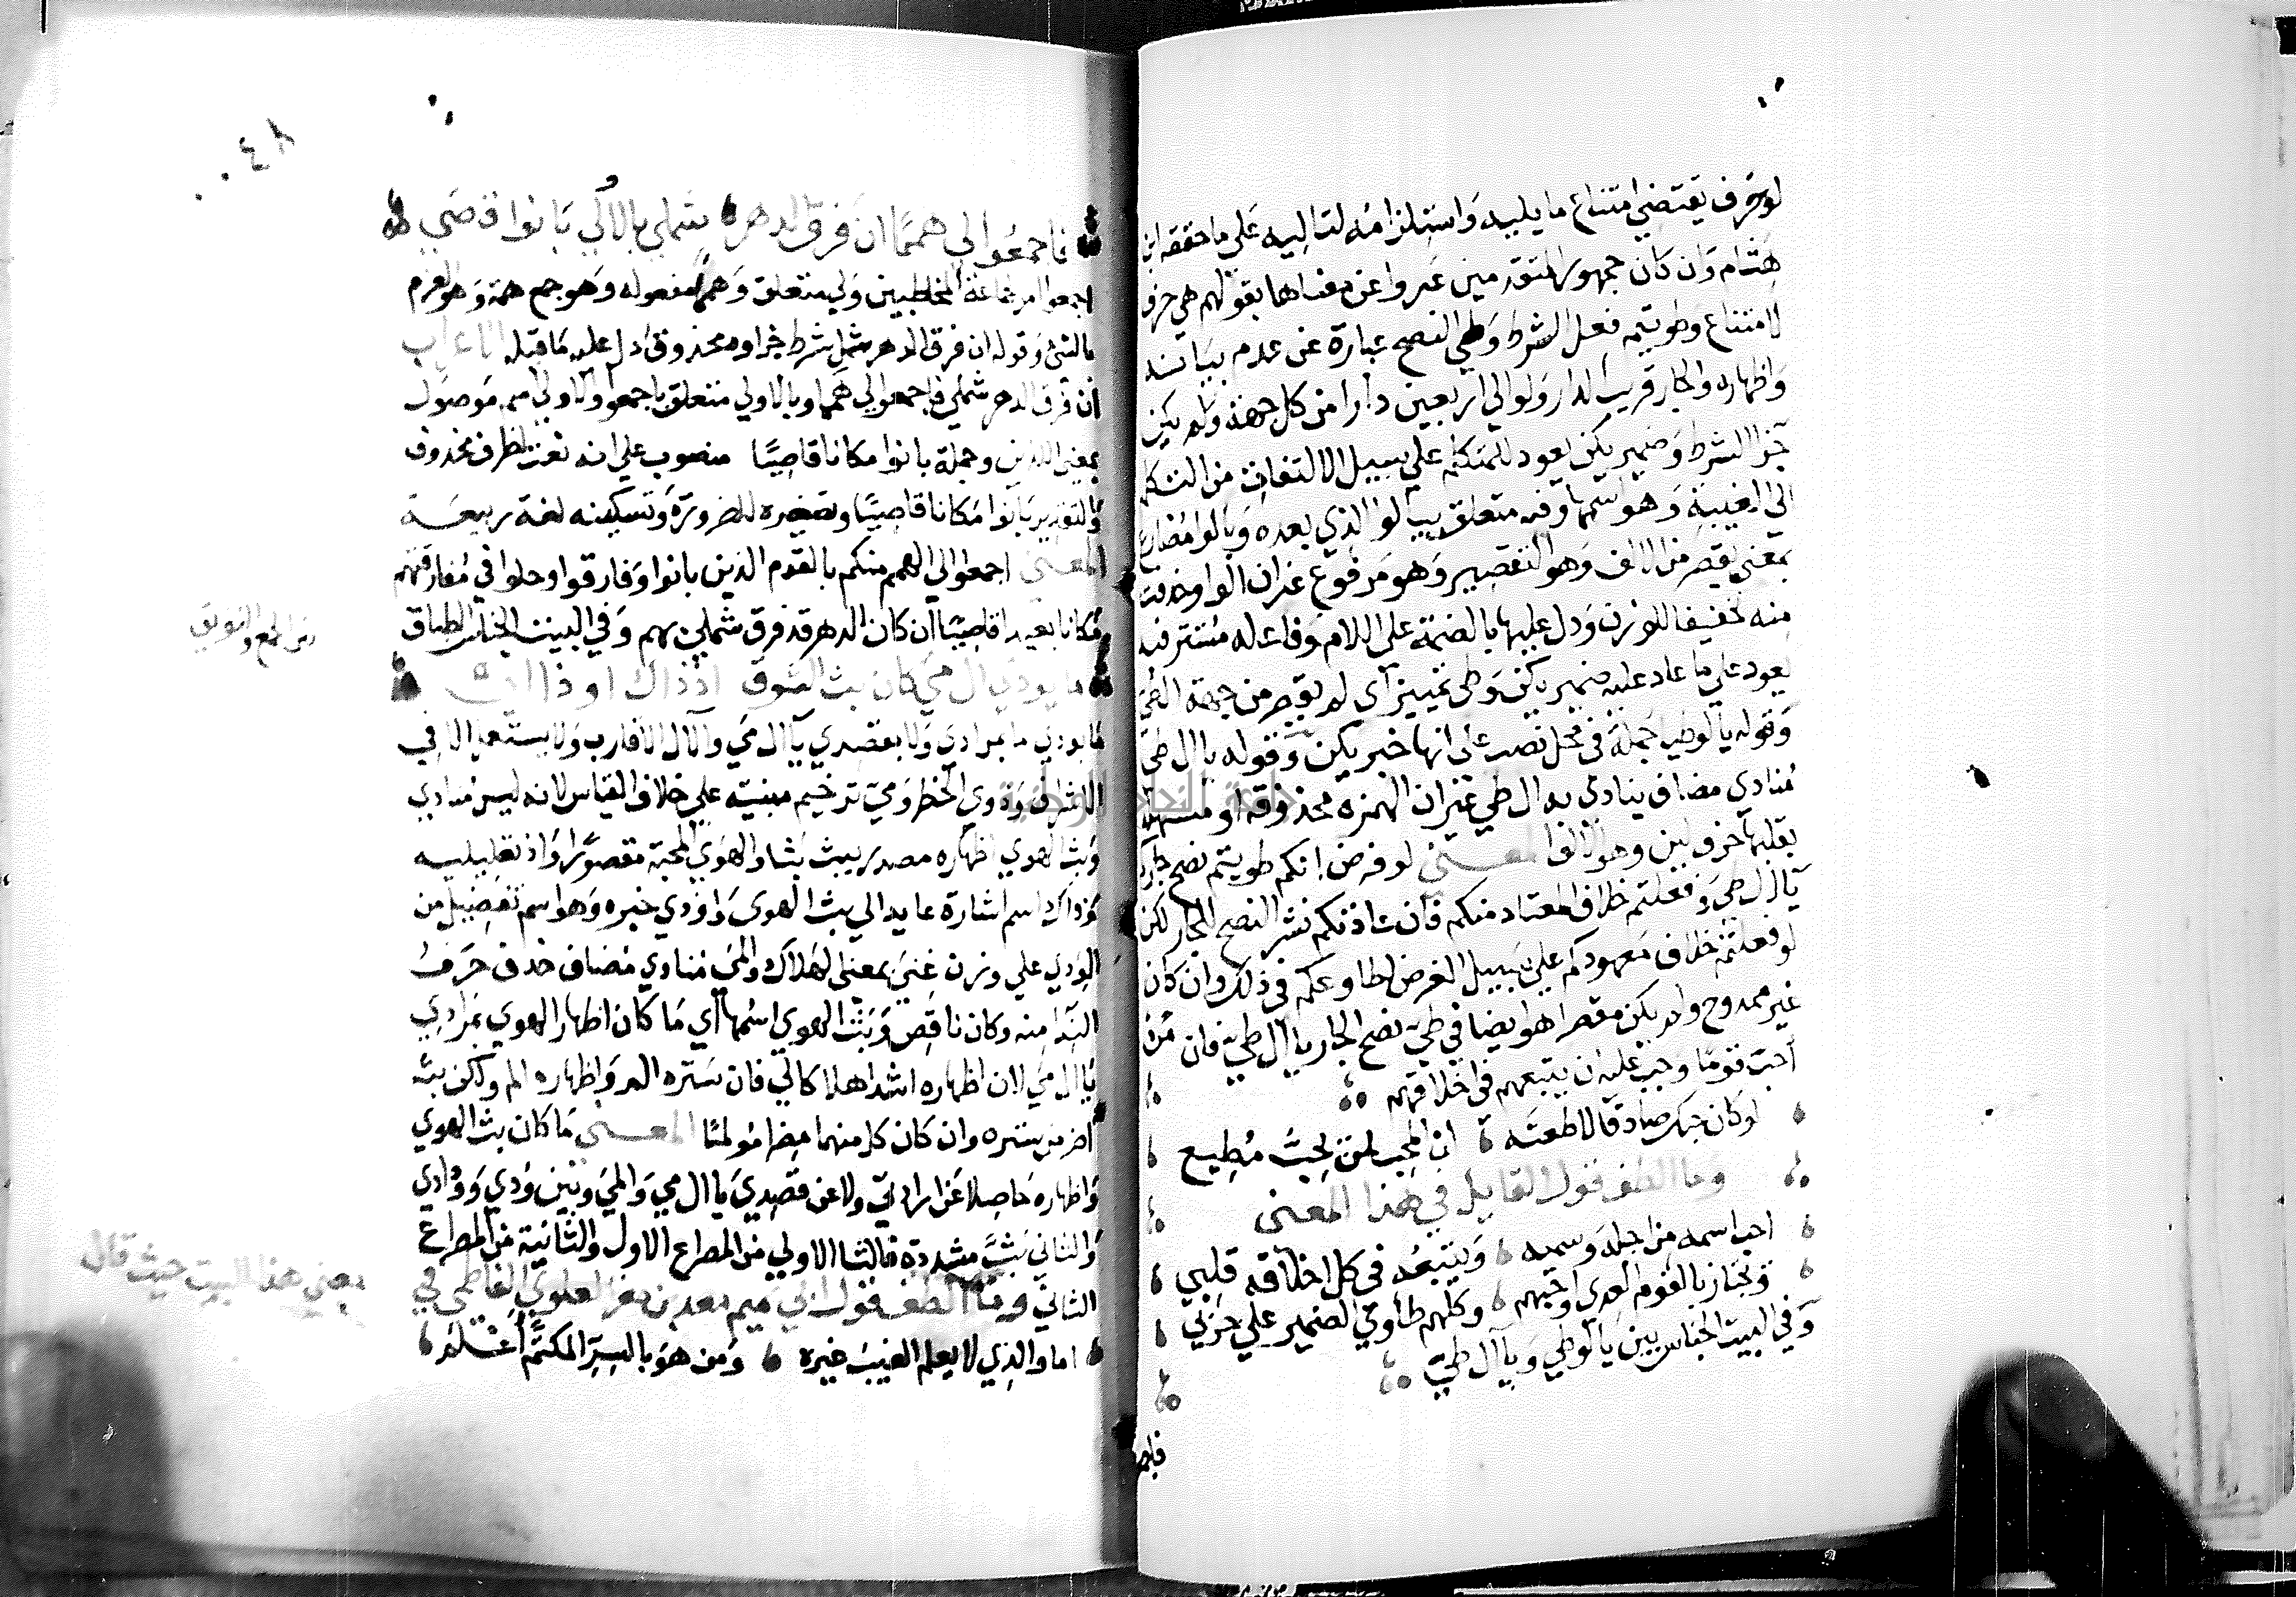 لو حرف يقتضي امتناع ما يليه واستلزامه لتاليه على ما حققه ابن
هشام وان كان جمهور المتقدمين عبروا عن معناها بقولهم هي حرف
لامتناع وطويتم فعل الشرط وطي النصح عبارة عن عدم بيانه
واظهاره والجار قريب الدار ولو الى اربعين دارا من كل جهة ولم يكن
جزا الشرط وضمير يكن يعود للمتكلم علي سبيل الالتفات من التكلم
الى الغيبة وهو اسمها وفيه متعلق بيالو الذي بعده ويالو مضارع
بمعنى يقصر من الالف وهو التقصير وهو مرفوع غير ان الواو حذفت
منه تخفيفا للوزن ودل عليها بالضمة على اللام وفاعله مستتر فيه
يعود علي ما عاد عليه ضمير يكن وطي تمييز اى لم يقصر من جهة الطي
وقوله يالو طيا جملة في محل نصب على انها خبر يكن وقوله يا ال طي
منادي مضاف ينادي به ال طي غير ان الهمزة محذوفة او مسهلة
بقلبها حرف لين وهو الالف المعنى لو فرض انكم طويتم نصح جاركم
يا ال طي وفعلتم خلاف المعتاد منكم فان عادتكم نشر النصح للجار لكن
لو فعلتم خلاف معهودكم علي سبيل الفرض لطاوعكم في ذلك وان كان
غير ممدوح ولم يكن مقصرا هو ايضا في طي نصح الجار يا ال طي فان من
احب قوما وجب عليه ان يتبعهم في اخلاقهم
لو كان حبك صادقا لاطعته ان المحب لمن يحب مطيع
وما الطف قول القايل في هذا المعنى
احب اسمه من اجله وسميه ويتبعه في كل اخلاقه قلبي
ونجتاز بالقوم العدى فاحبهم وكلهم طاوي الضمير علي حربي
وفي البيت الجناس بين يالو طي ويا ال طي
فاجمعوا
٤٨
فاجمعوا لي همما ان فرق الدهر شملي بالالي بانوا قصي
اجمعوا امر لجماعة المخاطبين ولي متعلق وهمما مفعوله وهو جمع همة وهو العزم
بالشئ وقوله ان فرق الدهر شملي شرط جزاوه محذوف دل عليه ما قبله الاعراب
ان فرق الدهر شملي فاجمعوا لي همما وبالاولي متعلق باجمعوا والاولي اسم موصول
بمعنى الذين وجملة بانوا مكانا قاصيا منصوب علي انه نعت لظرف محذوف
والتقدير بانوا مكانا قاصيا وتصغيره للضرورة وتسكينه لغة ربيعة
المعنى اجمعوا لي الهمم منكم بالقوم الذين بانوا وفارقوا وحلوا في مفارقتهم
مكانا بعيدا قاصيا ان كان الدهر قد فرق شملي بهم وفي البيت الجناس الطباق
بين الجمع والتفريق
ما بودي ال مي كان بث الهوى اذ ذاك اودا
ما بودي ما بمرادي ولا بقصدي يا ال مي والال الاقارب ولا يستعمل الا في
الاشراف وذوي الخطر ومي ترخيم مبنية علي خلاف القياس لانه ليس منادي
وبث الهوى اظهاره مصدر يبث بثا والهوى المحبة مقصورا واذ تعليلية
وذاك اسم اشارة عايد الي بث الهوى واودي خبره وهو اسم تفضيل من
الودي علي وزن غنى بمعنى الهلاك والمي منادي مضاف حذف حرف
الندا منه وكان ناقص وبث الهوى اسمها اي ما كان اظهار الهوي بمرادي
يا ال مي لان اظهاره اشد اهلاكا لي فان ستره الم واظهاره الم ولكن بثه
اضر من ستره وان كان كل منهما مضرا مولما المعنى ما كان بث الهوي
واظهاره حاصلا عن ارادتي ولا عن قصدي يا ال مي والمي وبين ودي وودادي
والثاني بث مشددة فالثا الاولي من المصراع الاول والثانية من المصراع
الثاني وما الطف قول ابي تميم معد بن معز العلوي الفاطمي في
معنى هذا البيت حيث قال
اما والذي لا يعلم الغيب غيره ومن هو بالسر المكتم اعلم